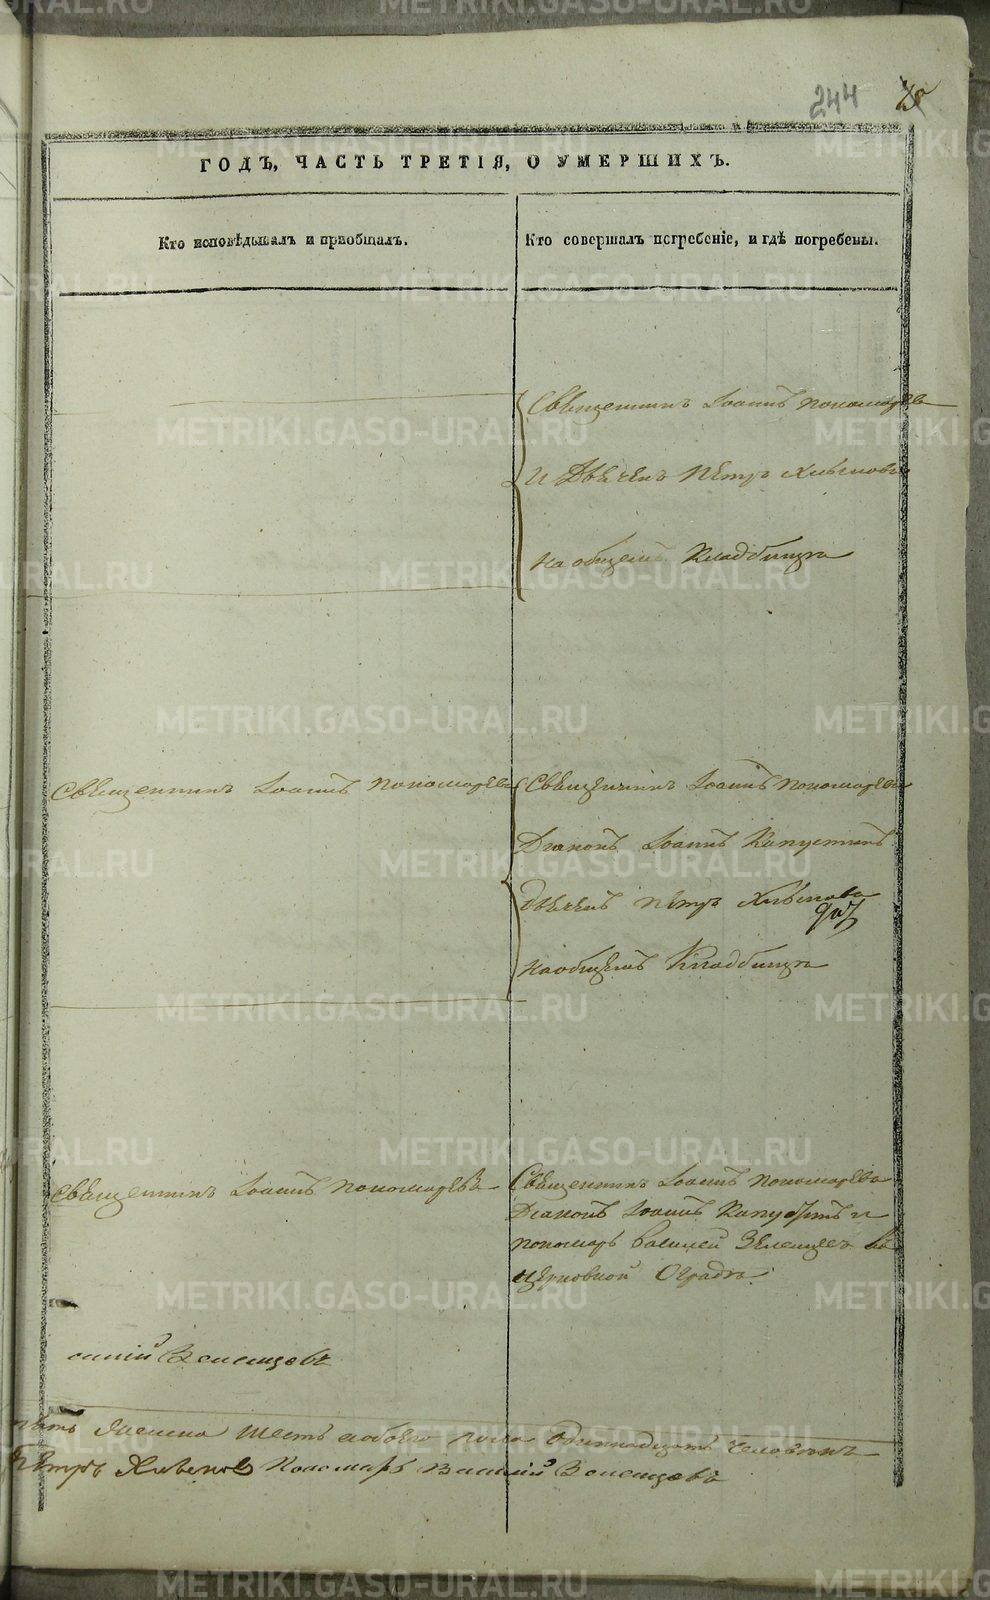 244
ГОДЪ, ЧАСТЬ ТРЕТІЯ, О УМЕРШИХЪ.
Кто исповѣдывалъ и приобщалъ.
Кто совершалъ погребеніе, и гдѣ погребены.
Священникъ Іоаннъ Пономаревъ
и Дьячекъ Петръ
на общемъ Кладбищѣ
Священникъ Іоаннъ Пономаревъ
Священникъ Іоаннъ Пономаревъ
Діаконъ Іоаннъ Капустинъ
Дьячекъ Петръ
на общемъ Кладбищѣ
Священникъ Іоаннъ Пономаревъ
Священникъ Іоаннъ Пономаревъ
Діаконъ Іоаннъ Капустинъ и
пономарь Василей въ
церковной Оградѣ
пять женска шесть обоего пола одиннадцать человѣкъ
Петръ Пономарь Василій
METRIKI.GASO-URAL.RU